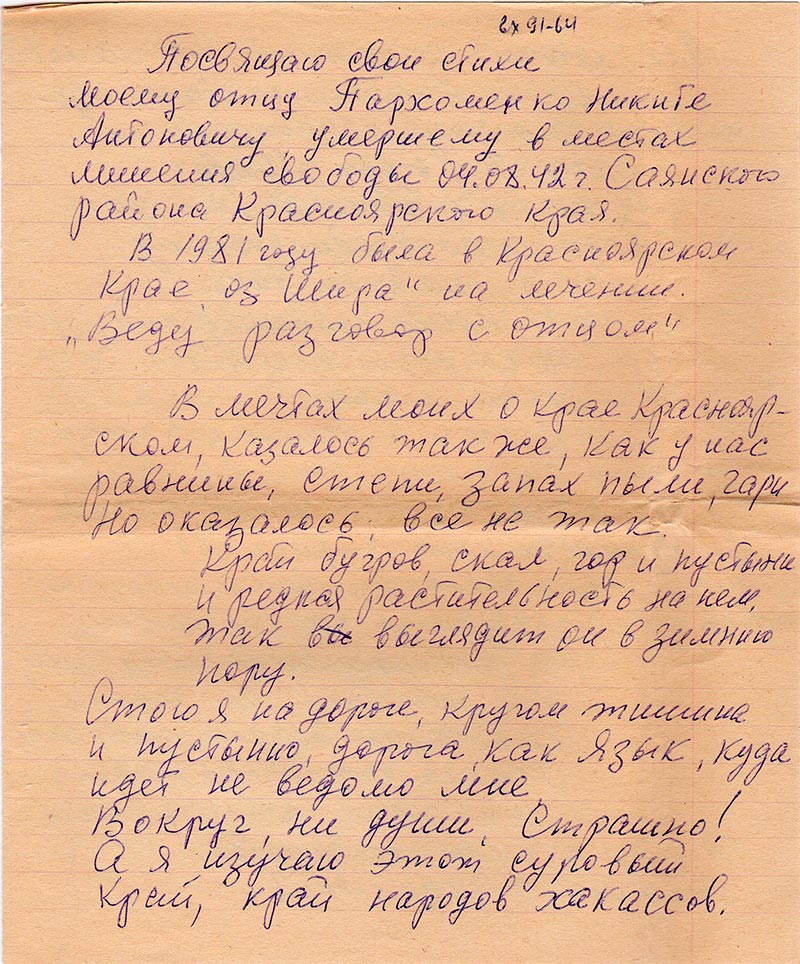 вх 91-64
Посвящаю свои стихи
моему отцу Пархоменко Никите
Антоновичу, умершему в местах
лишения свободы 04.08.42 г. Саянского
района Красноярского края.
В 1981 году была в Красноярском
Крае „оз Шира" на лечении.
„Веду разговор с отцом"
В мечтах моих о крае Краснояр-
ском, казалось так же, как у нас
равнины, степи, запах пыли, гари
Но оказалось, все не так.
Край бугров, скал, гор и пустыни
и редкая растительность на нем,
Так выглядит он в зимнию
пору.
Стою я на дороге, кругом тишина
и пустынно, дорога, как язык, куда
идет не ведомо мне.
Вокруг, ни души, Страшно!
А я изучаю этот суровый
Край, край народов хакассов.